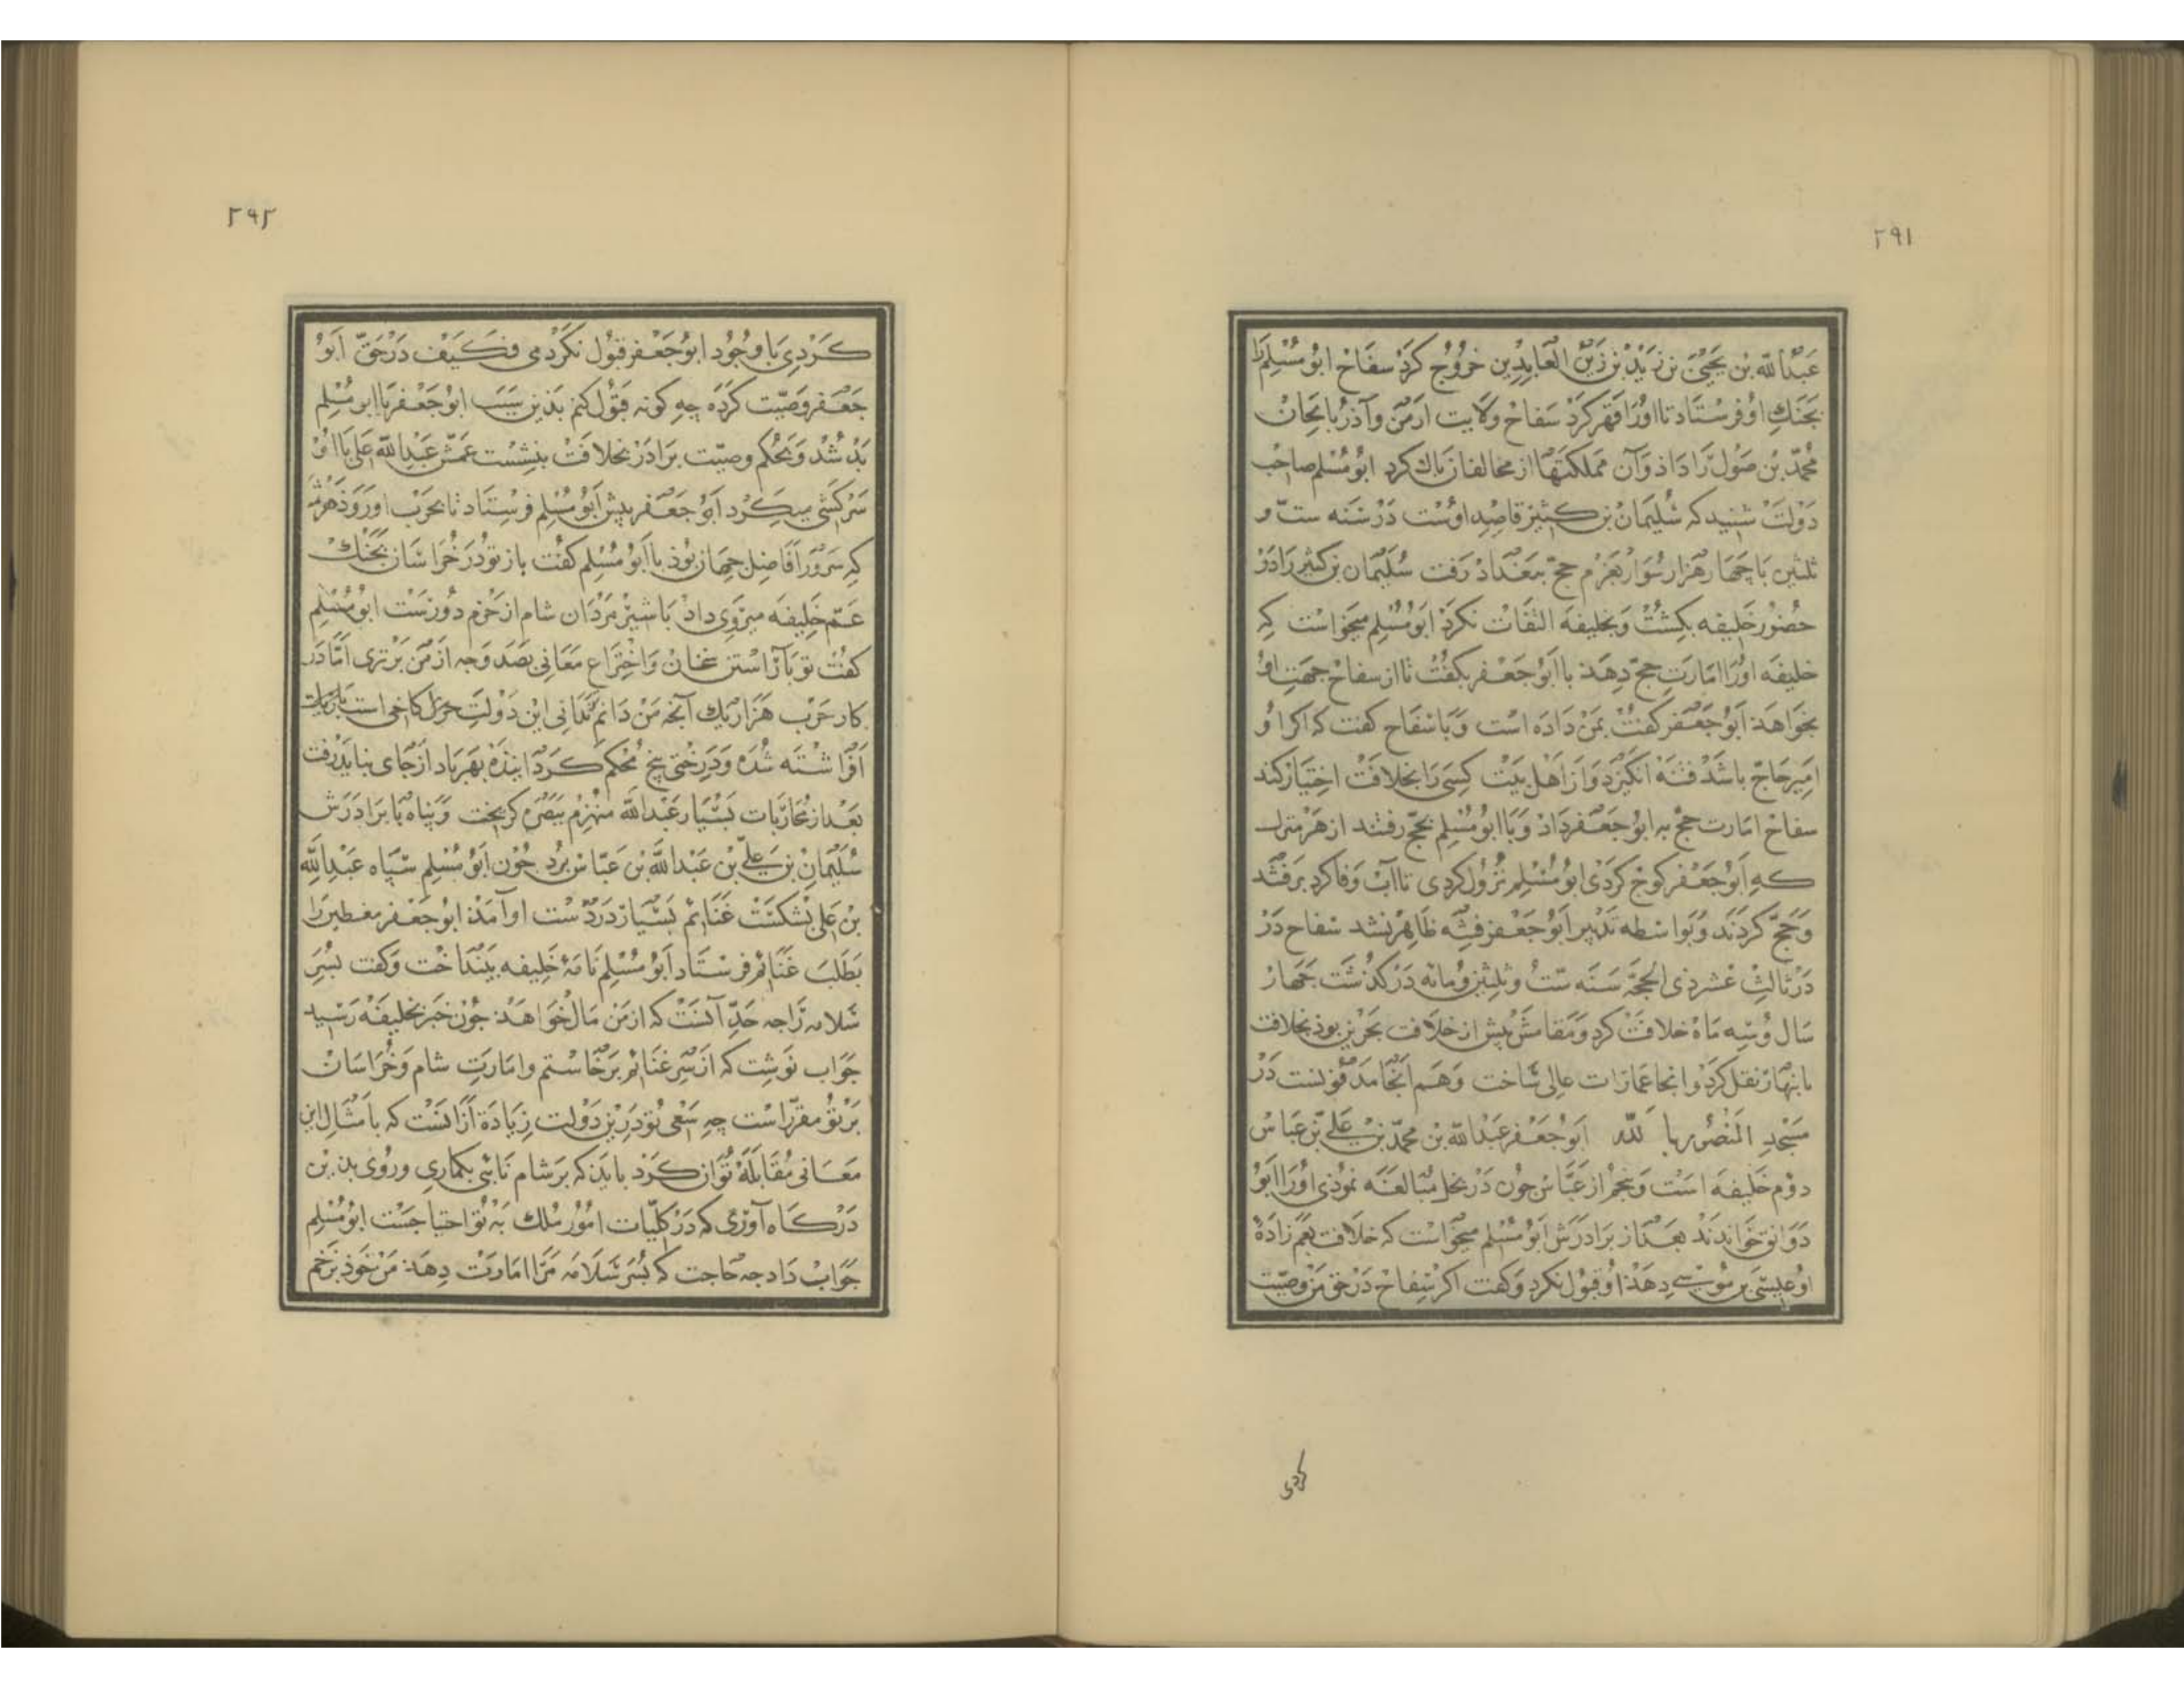 ٢٩١
عبدالله بن یحیی بن زید بن زین العابدین خروج کرد سفاح ابو مسلم را
بجنک او فرستاد تا اورا قهر کرد سفاح ولایت ارمن وآذربایجان
محمد بن صول را داد وآن مملکتها از مخالفان پاک کرد ابو مسلم صاحب
دولت شنید که سلیمان بن کثیر قاصد اوست در سنه ست و
ثلثین با چهار هزار سوار بعزم حج ببغداد رفت سلیمان بن کثیر را در
حضور خلیفه بکشت وبخلیفه التفات نکرد ابو مسلم میخواست که
خلیفه اورا امارت حج دهد با ابو جعفر بکفت تا از سفاح جهت او
بخواهد ابو جعفر کفت بمن داده است وبا سفاح کفت که اکر او
امیر حاج باشد فتنه انکیزد واز اهل بیت کسی را بخلافت اختیار کند
سفاح امارت حج به ابو جعفر داد وبا ابو مسلم بحج رفتند از هر منزل
که ابو جعفر کوچ کردی ابو مسلم نزول کردی تا آب وفا کرد برفتند
وحج کردند وبواسطه تدبیر ابو جعفر فتنه ظاهر نشد سفاح در
در ثالث عشر ذی الحجه سنه ست وثلثین ومائه در کذشت چهار
سال وسه ماه خلافت کرد ومقامش پیش از خلافت بحرین بوذ بخلافت
بانبار نقل کرد وانجا عمارات عالی ساخت وهم آنجا مدفونست در
مسجد المنصور بالله ابو جعفر عبدالله بن محمد بن علی بن عباس
دوم خلیفه است وپنجم از عباس چون در بخل مبالغه نموذی اورا ابو
دوانق خواندند بعد از برادرش ابو مسلم میخواست که خلافت بعم زاده
او عیسی بن موسی دهد او قبول نکرد وکفت اکر سفاح در حق من وصیت
کردی
٢٩٢
کردی با وجود ابو جعفر قبول نکردمی فکیف در حق ابو
جعفر وصیت کرده چه کونه قبول کنم بدین سبب ابو جعفر با ابو مسلم
بد شد وبحکم وصیت برادر بخلافت بنشست عمش عبدالله علی با او
سرکشی میکرد ابو جعفر پیش ابو مسلم فرستاد تا بحرب او روذ
که سرور افاضل جهان بوذ با ابو مسلم کفت باز تو در خراسان بجنک
عم خلیفه میروی داد با شیر مردان شام از حزم دورست ابو مسلم
کفت تو بآراستن سخان واختراع معانی بصد وجه از من برتری اما در
کار حرب هزار یک آنچه من دانم ندانی این دولت کاخی است
افراشته شده ودرختی بیخ محکم کرده بهر باد از جای نیاید رفت
بعد از محاربات بسیار عبدالله منهزم ببصره کریخت وپناه با برادرش
سلیمان بن علی بن عبدالله بن عباس برد چون ابو مسلم سپاه عبدالله
بن علی بشکست غنائم بسیار در دست او آمد ابو جعفر را
بطلب غنائم فرستاد ابو مسلم نامهٔ خلیفه بینداخت وکفت پسر
سلامه را چه حد آنست که از من مال خواهد چون خبر بخلیفه رسید
جواب نوشت که از سر غنائم برخاستم وامارت شام وخراسان
بر تو مقررست چه سعی تو درین دولت زیاده از آنست که بامثال این
معانی مقابله توان کرد باید که بر شام نائبی بکماری وروی بدین
درکاه آوری که در کلیات امور ملک به تو احتیاجست ابو مسلم
جواب داد چه حاجت که پسر سلامه مرا امارت دهد من خوذ بزخم